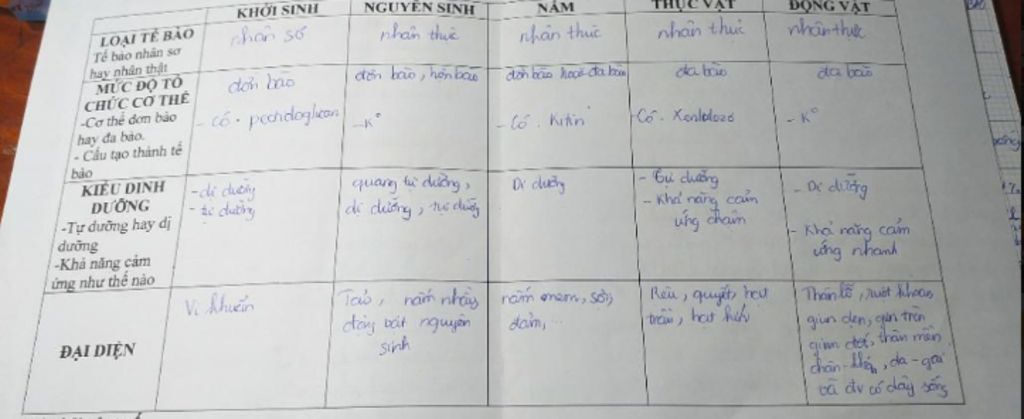 KHỞI SINH NGUYÊN SINH NẤM THỰC VẬT ĐỘNG VẬT
LOẠI TẾ BÀO
Tế bào nhân sơ
hay nhân thật
nhân sơ
nhân thực
nhân thực
nhân thực
nhân thực
MỨC ĐỘ TỔ
CHỨC CƠ THỂ
-Cơ thể đơn bào
hay đa bào.
- Cấu tạo thành tế
bào
đơn bào
- có.
đơn bào,
- K°
đơn bào hoặc đa bào
- Có. Kitin
đa bào
- Có.
đa bào
- K°
KIỂU DINH
DƯỠNG
-Tự dưỡng hay dị
dưỡng
-Khả năng cảm
ứng như thế nào
- dị dưỡng
- tự dưỡng
quang tự dưỡng,
dị dưỡng, tự dưỡng
Dị dưỡng
- Tự dưỡng
- Khả năng cảm
ứng chậm
- Dị dưỡng
- Khả năng cảm
ứng nhanh
ĐẠI DIỆN
Vi khuẩn
Tảo, nấm nhầy,
động vật nguyên
sinh
nấm men, sợi,
đảm, ...
Rêu, quyết, hạt
trần, hạt kín
Thân lỗ, ruột khoang,
giun dẹp, giun tròn
giun đốt, thân mềm
chân khớp, da gai
và đv có dây sống